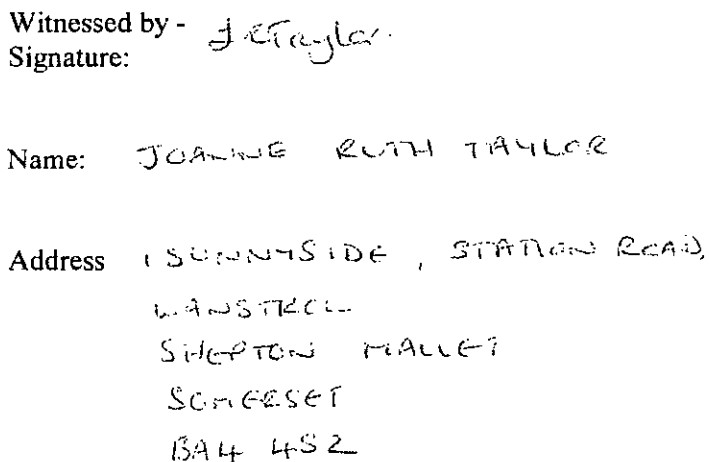 Witnessed by - J R Taylor.
Signature:
Name: JOANNE RUTH TAYLOR
Address 1 SUNNYSIDE, STATION ROAD,
WANSTROW
SHEPTON MALLET
SOMERSET
BA4 4SZ